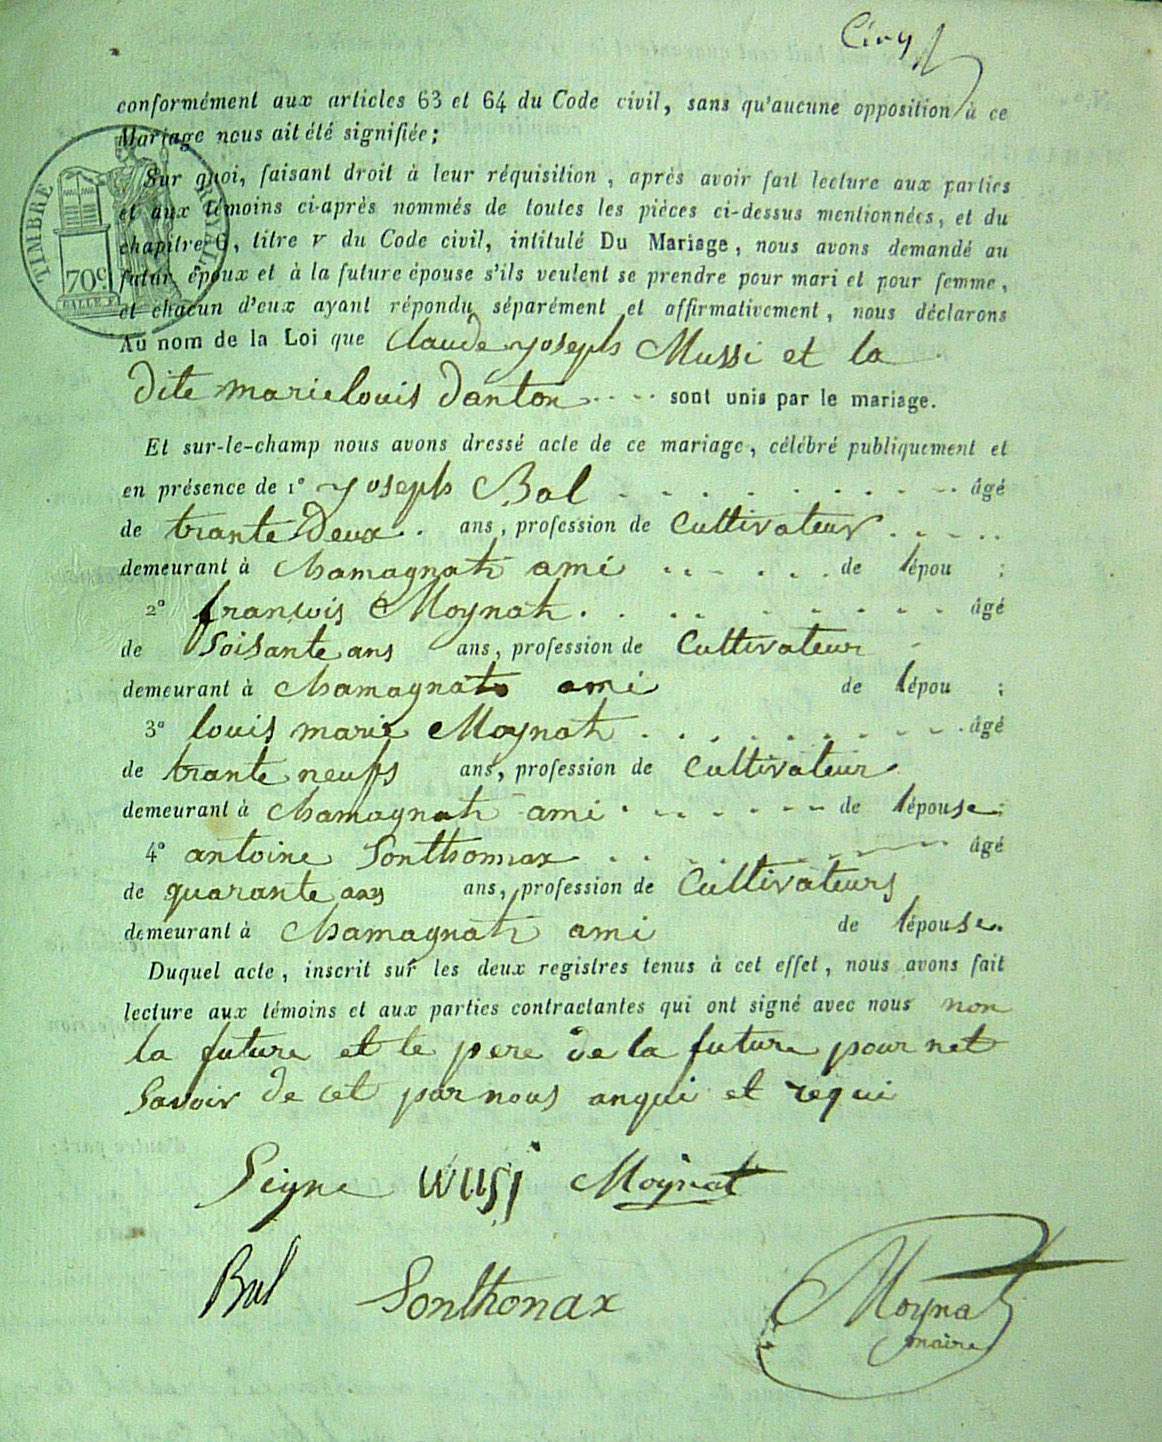 Cinq
conformément aux articles 63 et 64 du Code civil, sans qu'aucune opposition à ce
Mariage nous ait été signifiée;
Sur quoi, faisant droit à leur réquisition, après avoir fait lecture aux parties
et aux témoins ci-après nommés de toutes les pièces ci-dessus mentionnées, et du
chapitre 6, titre v du Code civil, intitulé Du Mariage, nous avons demandé au
futur époux et à la future épouse s'ils veulent se prendre pour mari et pour femme,
et chacun d'eux ayant répondu séparément et affirmativement, nous déclarons
TIMBRE ROYAL
70c
Au nom de la Loi que Claude joseph Mussi et la
dite marie louis danton sont unis par le mariage.
Et sur-le-champ nous avons dressé acte de ce mariage, célébré publiquement et
en présence de 1° joseph Bal âgé
de trante deux ans, profession de Cultivateur
demeurant à Chamagnat ami de l'épou ;
2° françois Moynat âgé
de Soisante ans ans, profession de Cultivateur
demeurant à Chamagnat ami de l'épou ;
3° louis marie Moynat âgé
de trante neufs ans, profession de Cultivateur
demeurant à Chamagnat ami de l'épouse ;
4° antoine Sonthonnax âgé
de quarante ans ans, profession de Cultivateurs
demeurant à Chamagnat ami de l'épouse.
Duquel acte, inscrit sur les deux registres tenus à cet effet, nous avons fait
lecture aux témoins et aux parties contractantes qui ont signé avec nous non
la future et le pere de la future pour net
Savoir de cet par nous anqui et requi
Signe Musi Moynat
Bal Sonthonax
Moynat
maire